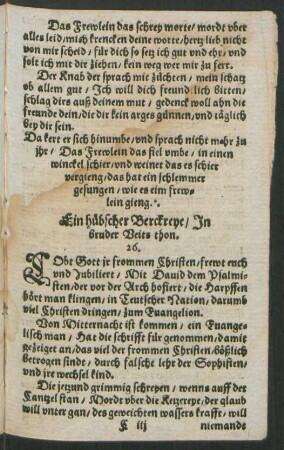 Das Frewlein das schrey morte/ mordt vber
alles leid/ mich krencken deine worte/ hertz lieb nicht
von mir scheid/ für dich so setz ich gut vnd ehr/ vnd
solt ich mit dir ziehen/ kein weg wer mir zu ferr.
Der Knab der sprach mit züchten/ mein schatz
ob allem gut/ Ich will dich freundtlich bitten/
schlag dirs auß deinem mut/ gedenck woll ahn die
freunde dein/ die dir kein arges günnen/ vnd täglich
bey dir sein.
Da kert er sich hinumbe/ vnd sprach nicht mehr zu
jhr/ Das Frewlein das fiel vmbe/ in einen
winckel schier/ vnd weinet das es schier
vergieng/ das hat ein schlemmer
gesungen/ wie es eim frew-
lein gieng.
Ein hübscher Berckreye/ In
bruder Veits thon.
26.
LObt Gott jr frommen Christen/ frewt euch
vnd Jubiliert/ Mit Dauid dem Psalmi-
sten/ der vor der Arch hofiert/ die Harpffen
hört man klingen/ in Teutscher Nation/ darumb
viel Christen dringen/ zum Euangelion.
Von Mitternacht ist kommen/ ein Euange-
lisch man/ Hat die schrifft für genommen/ damit
gezeiget an/ das viel der frommen Christen/ böslich
betrogen sindt/ durch falsche lehr der Sophisten/
vnd jre wechsel kind.
Die jetzund grimmig schreyen/ wenns auff der
Cantzel stan/ Mordt vber die Ketzereye/ der glaub
will vnter gan/ des geweichten wassers krafft/ will
C iij niemands